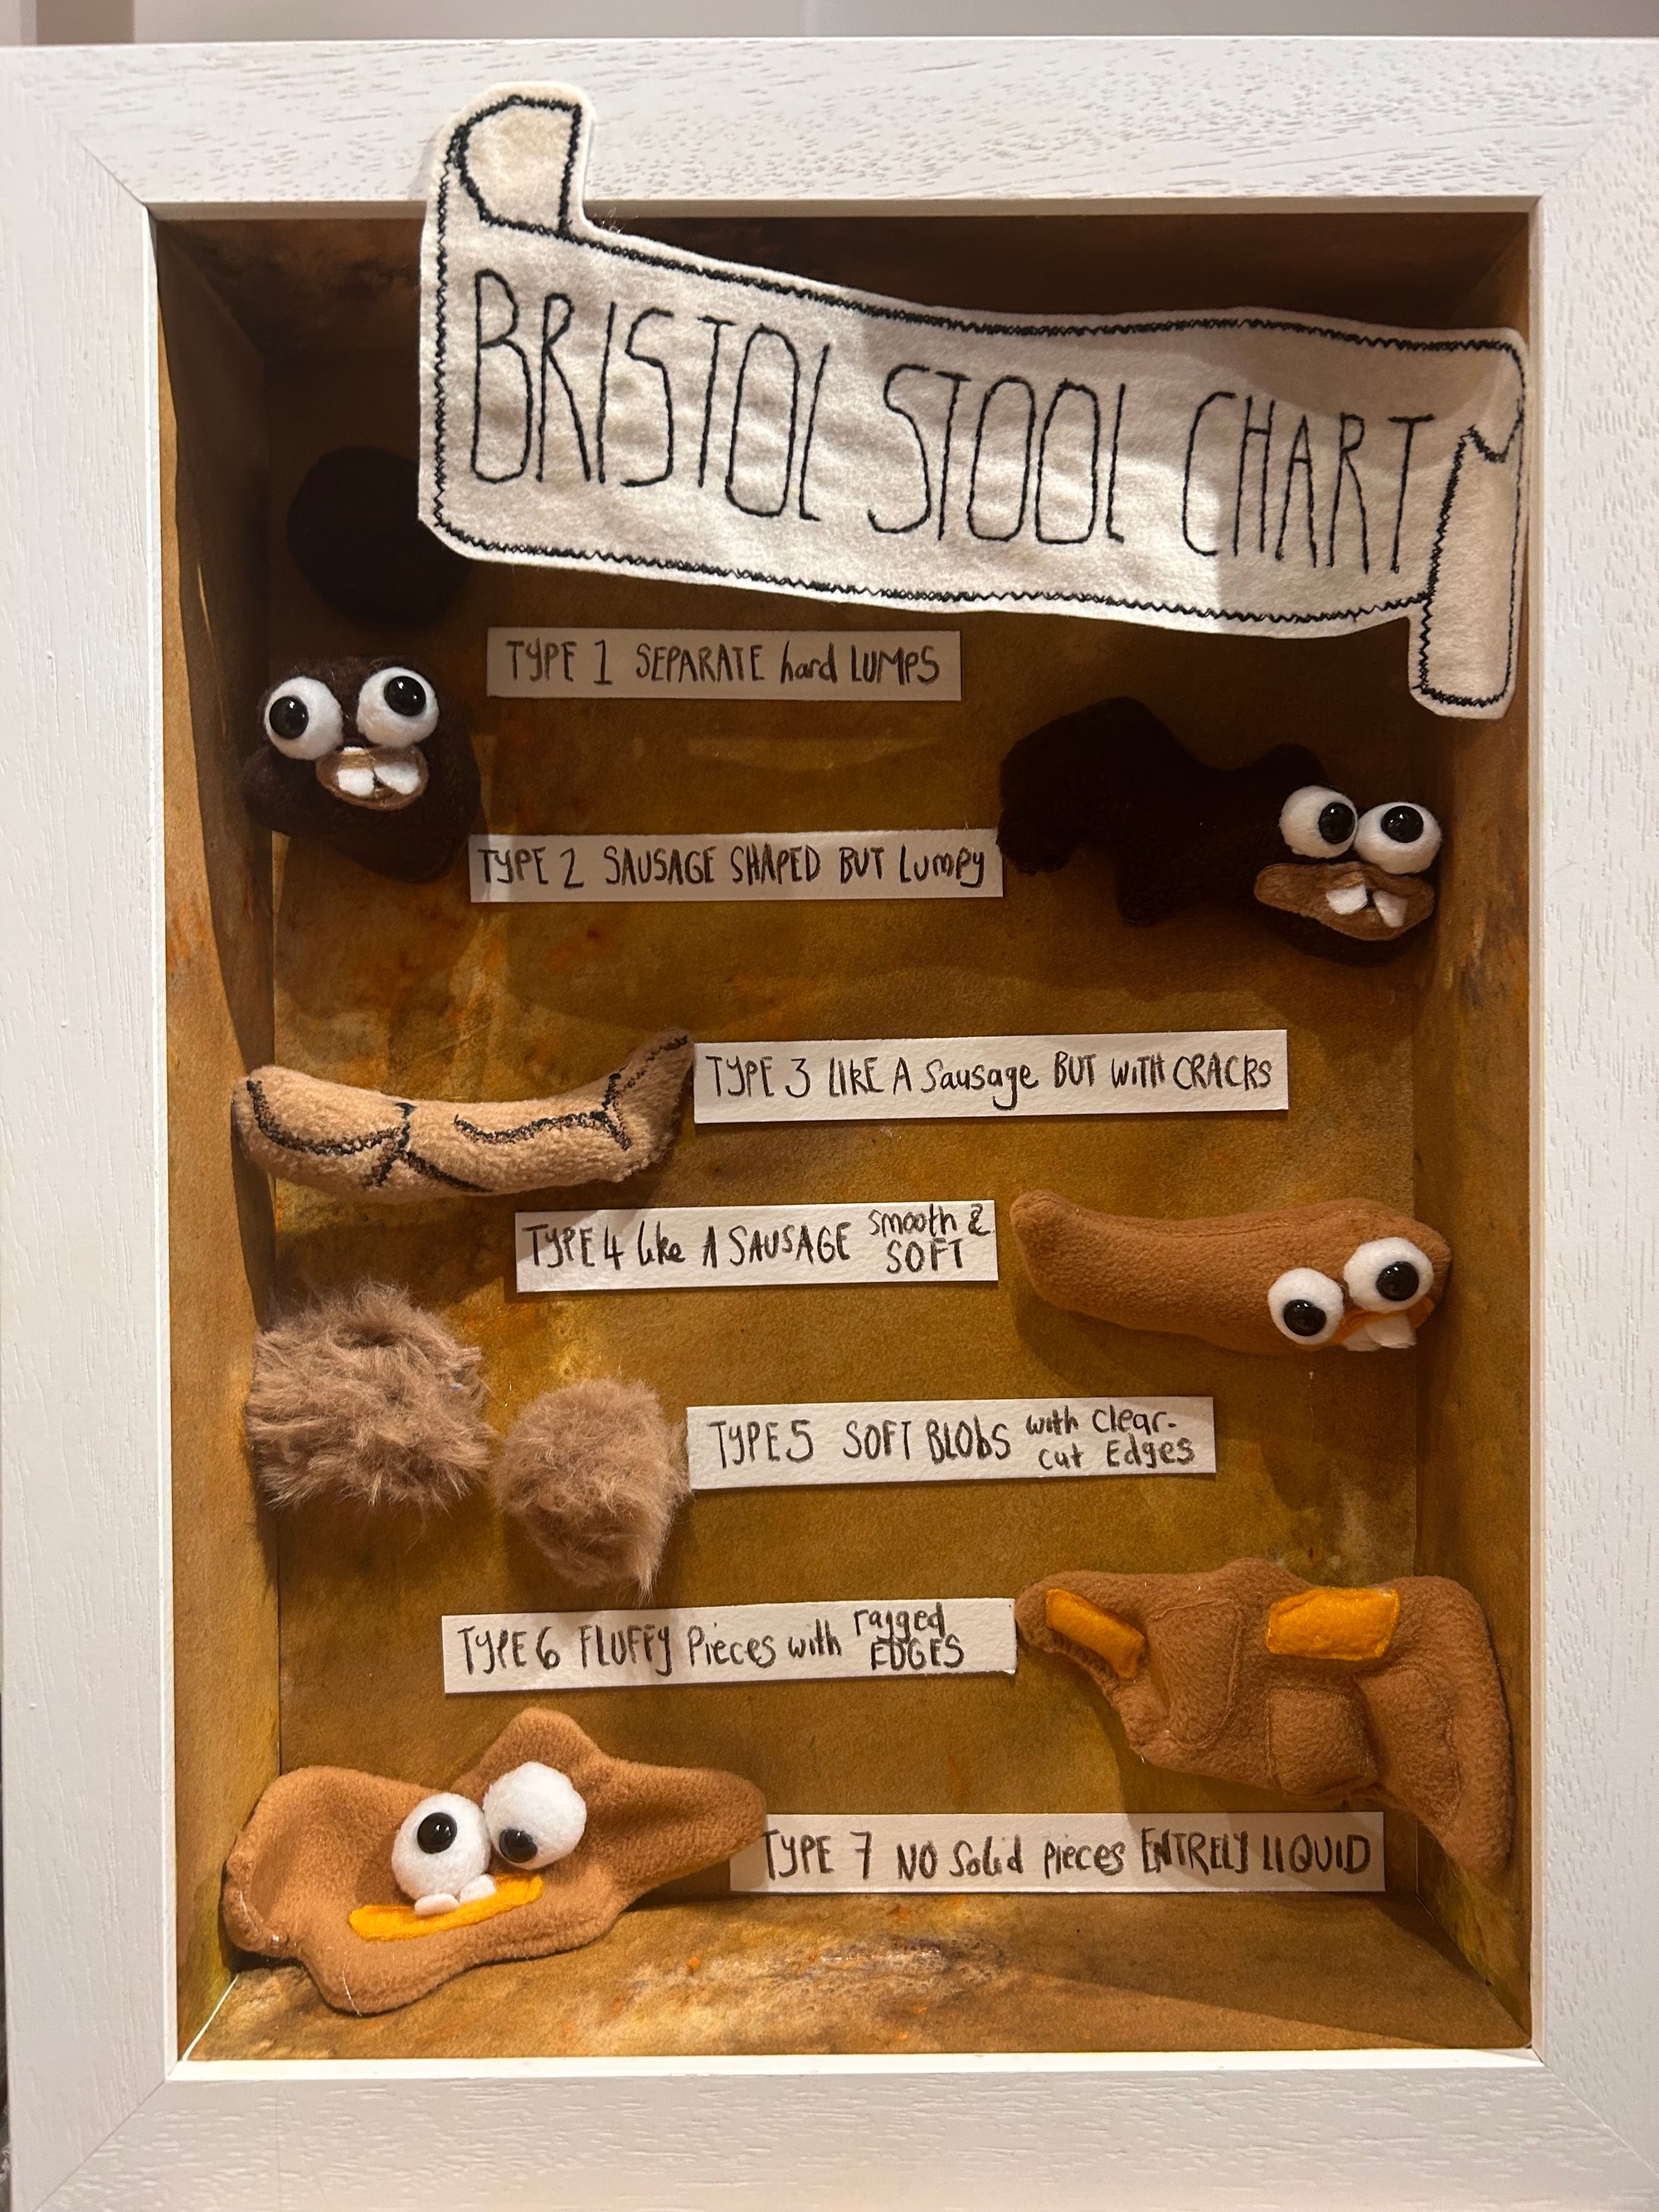 BRISTOL STOOL CHART
TYPE 1 SEPARATE hard LUMPS
TYPE 2 SAUSAGE SHAPED BUT Lumpy
TYPE 3 LIKE A Sausage BUT WITH CRACKS
TYPE 4 like A SAUSAGE smooth &
SOFT
TYPE 5 SOFT BLObS with Clear-
cut Edges
TYPE 6 FLUFFy Pieces with ragged
EDGES
TYPE 7 NO Solid pieces ENTRELY LIQUID